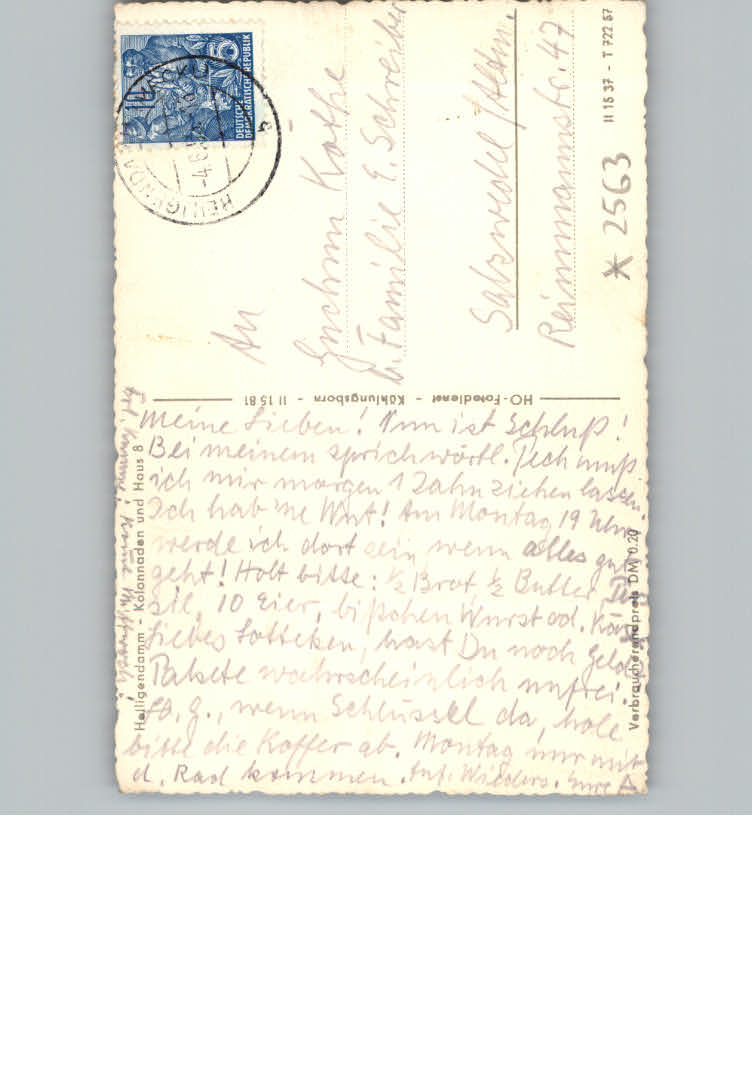 DEUTSCHE
DEMOKRATISCHE REPUBLIK
10
HEILIGENDAMM
-4.6.
a
An
Kothe
b. Familie E. Schreiber
Salzwedel /Altm.
Reimmannstr. 47
II 15 37 - T 722 57
* 2563
HO-Fotodienst - Kühlungsborn - II 15 81
Heiligendamm - Kolonnaden und Haus 8
Verbraucherendpreis DM 0.20
Meine Lieben! Nun ist Schluß!
Bei meinem sprichwörtl. Pech muß
ich mir morgen 1 Zahn ziehen lassen.
Ich hab 'ne Wut! Am Montag 19 Uhr
werde ich dort sein, wenn alles gut
geht! Holt bitte: ½ Brot, ½ Butter,
10 Eier, bißchen Wurst od. Käse
Liebes Lottchen, hast Du noch Geld?
Pakete wahrscheinlich unfrei.
wenn Schlüssel da, hole
bitte die Koffer ab. Montag nur mit
d. Rad kommen. Auf. Wieders. Eure A